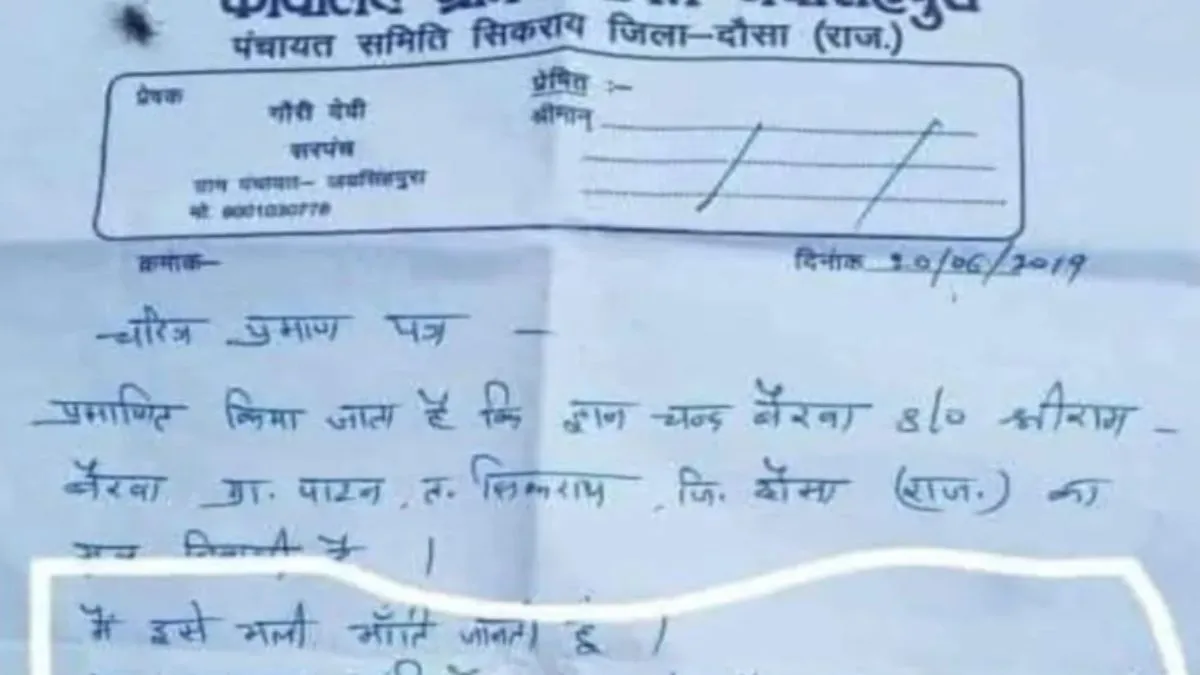 कार्यालय ग्राम
पंचायत समिति सिकराय जिला–दौसा (राज.)
प्रेषक
गौरी देवी
सरपंच
ग्राम पंचायत– जयसिंहपुरा
मो. 9001030778
प्रेषित :–
श्रीमान्
क्रमांक–
दिनांक 20/06/2019
चरित्र प्रमाण पत्र –
प्रमाणित किया जाता है कि ज्ञान चन्द बैरवा S/o श्रीराम –
बैरवा ग्रा. पाटन, त. सिकराय, जि. दौसा (राज.) का
मूल निवासी है ।
मैं इसे भली भाँति जानता हूं ।